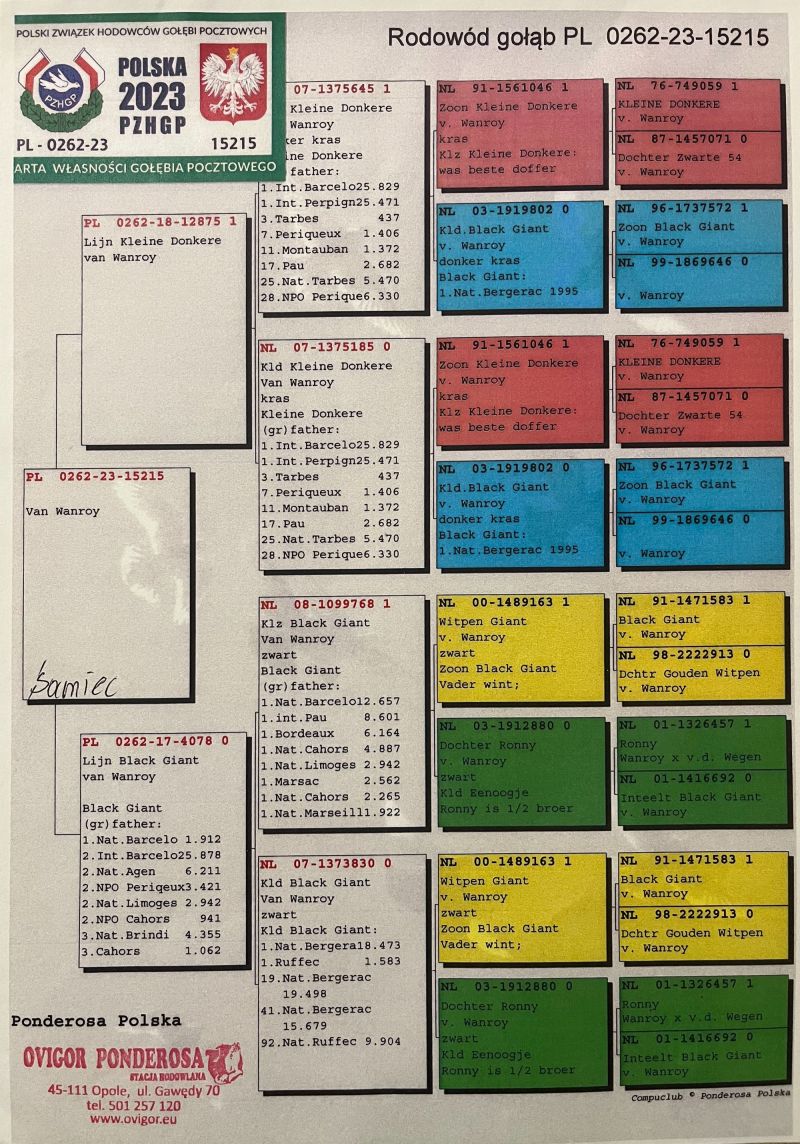 Rodowód gołąb PL 0262-23-15215
POLSKI ZWIĄZEK HODOWCÓW GOŁĘBI POCZTOWYCH
PZHGP
POLSKA
2023
PZHGP
PL - 0262-23 15215
ARTA WŁASNOŚCI GOŁĘBIA POCZTOWEGO
PL 0262-23-15215
Van Wanroy
Samiec
PL 0262-18-12875 1
Lijn Kleine Donkere
van Wanroy
PL 0262-17-4078 0
Lijn Black Giant
van Wanroy
Black Giant
(gr)father:
1.Nat.Barcelo 1.912
2.Int.Barcelo25.878
2.Nat.Agen 6.211
2.NPO Periqeux3.421
2.Nat.Limoges 2.942
2.NPO Cahors 941
3.Nat.Brindi 4.355
3.Cahors 1.062
07-1375645 1
Kleine Donkere
Wanroy
ker kras
ine Donkere
father:
1.Int.Barcelo25.829
1.Int.Perpign25.471
3.Tarbes 437
7.Periqueux 1.406
11.Montauban 1.372
17.Pau 2.682
25.Nat.Tarbes 5.470
28.NPO Perique6.330
NL 07-1375185 0
Kld Kleine Donkere
Van Wanroy
kras
Kleine Donkere
(gr)father:
1.Int.Barcelo25.829
1.Int.Perpign25.471
3.Tarbes 437
7.Periqueux 1.406
11.Montauban 1.372
17.Pau 2.682
25.Nat.Tarbes 5.470
28.NPO Perique6.330
NL 08-1099768 1
Klz Black Giant
Van Wanroy
zwart
Black Giant
(gr)father:
1.Nat.Barcelo12.657
1.int.Pau 8.601
1.Bordeaux 6.164
1.Nat.Cahors 4.887
1.Nat.Limoges 2.942
1.Marsac 2.562
1.Nat.Cahors 2.265
1.Nat.Marseill1.922
NL 07-1373830 0
Kld Black Giant
Van Wanroy
zwart
Kld Black Giant:
1.Nat.Bergera18.473
1.Ruffec 1.583
19.Nat.Bergerac
19.498
41.Nat.Bergerac
15.679
92.Nat.Ruffec 9.904
NL 91-1561046 1
Zoon Kleine Donkere
v. Wanroy
kras
Klz Kleine Donkere:
was beste doffer
NL 03-1919802 0
Kld.Black Giant
v. Wanroy
donker kras
Black Giant:
1.Nat.Bergerac 1995
NL 91-1561046 1
Zoon Kleine Donkere
v. Wanroy
kras
Klz Kleine Donkere:
was beste doffer
NL 03-1919802 0
Kld.Black Giant
v. Wanroy
donker kras
Black Giant:
1.Nat.Bergerac 1995
NL 00-1489163 1
Witpen Giant
v. Wanroy
zwart
Zoon Black Giant
Vader wint;
NL 03-1912880 0
Dochter Ronny
v. Wanroy
zwart
Kld Eenoogje
Ronny is 1/2 broer
NL 00-1489163 1
Witpen Giant
v. Wanroy
zwart
Zoon Black Giant
Vader wint;
NL 03-1912880 0
Dochter Ronny
v. Wanroy
zwart
Kld Eenoogje
Ronny is 1/2 broer
NL 76-749059 1
KLEINE DONKERE
v. Wanroy
NL 87-1457071 0
Dochter Zwarte 54
v. Wanroy
NL 96-1737572 1
Zoon Black Giant
v. Wanroy
NL 99-1869646 0
v. Wanroy
NL 76-749059 1
KLEINE DONKERE
v. Wanroy
NL 87-1457071 0
Dochter Zwarte 54
v. Wanroy
NL 96-1737572 1
Zoon Black Giant
v. Wanroy
NL 99-1869646 0
v. Wanroy
NL 91-1471583 1
Black Giant
v. Wanroy
NL 98-2222913 0
Dchtr Gouden Witpen
v. Wanroy
NL 01-1326457 1
Ronny
Wanroy x v.d. Wegen
NL 01-1416692 0
Inteelt Black Giant
v. Wanroy
NL 91-1471583 1
Black Giant
v. Wanroy
NL 98-2222913 0
Dchtr Gouden Witpen
v. Wanroy
NL 01-1326457 1
Ronny
Wanroy x v.d. Wegen
NL 01-1416692 0
Inteelt Black Giant
v. Wanroy
Ponderosa Polska
OVIGOR PONDEROSA
STACJA RODOWLANA
45-111 Opole, ul. Gawędy 70
tel. 501 257 120
www.ovigor.eu
Compuclub © Ponderosa Polska